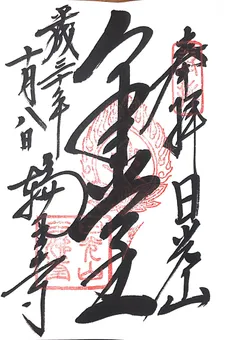 奉拝 日光山
金堂
三十年十月八日 輪王寺